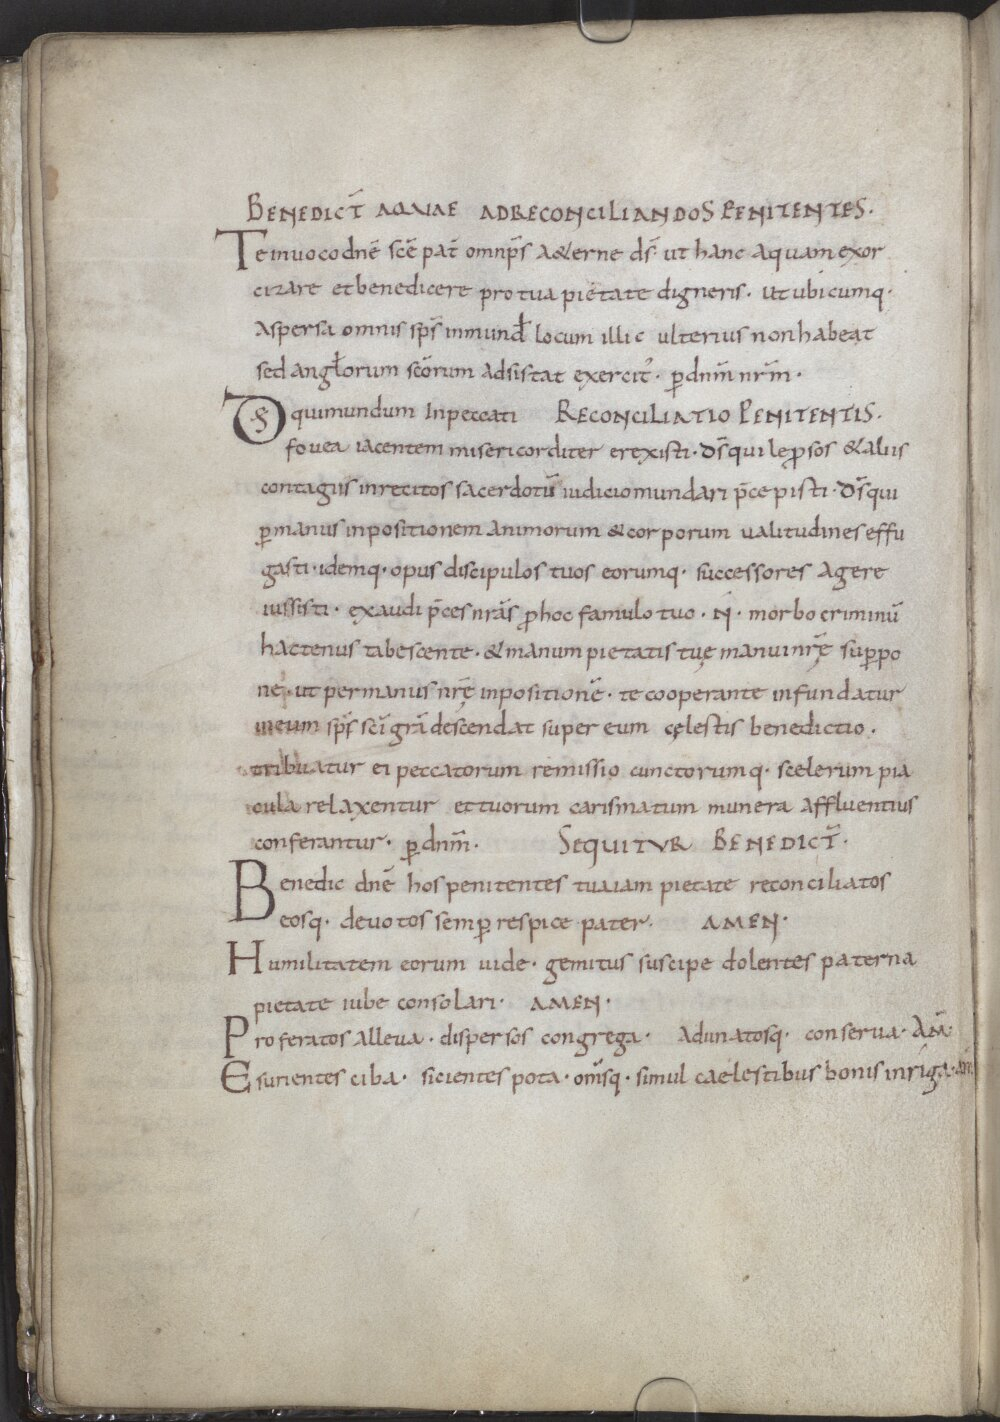 BENEDICT̄ AQUAE AD RECONCILIANDOS PENITENTES.
Te inuoco dnē scē pat̄ omnp̄s Aeterne ds̄ · ut hanc aquam exor
cizare et benedicere pro tua pietate digneris · ut ubicumq·
aspersa omnis sps̄ inmund̄ locum illic ulterius non habeat
sed angl̄orum scōrum adsistat exercit᾽ · p̱ dnm̄ nrm̄ ·
D̄s qui mundum In peccati RECONCILIATIO PENITENTIS.
fouea iacentem misericorditer erexisti · Ds̄ qui lep̄sos & aliis
contagiis inretitos sacerdotū iudicio mundari p̄cepisti · Ds̄ qui
p̱ manus inpositionem animorum & corporum ualitudines effu
gasti · idemq· opus discipulos tuos eorumq· successores agere
iussisti · exaudi p̄ces nrās p̄ hoc famulo tuo · N̄ · morbo criminū
hactenus tabescente · & manum pietatis tuę manui nrę̄ sup̱po
ne · ut per manus nrę̄ inpositionē · te cooperante infundatur
in eum sps̄ sc̄i grā descendat super eum cęlestis benedictio ·
tribuatur ei peccatorum remissio cunctorumq· scelerum pia
cula relaxentur et tuorum carismatum munera affluentius
conferantur · p̱ dnm̄ · SEQUITUR BENEDICT̄ ·
Benedic dnē hos penitentes tua iam pietate reconciliatos
eosq· deuotos semp̱ respice pater · AMEN ·
Humilitatem eorum uide · gemitus suscipe dolentes paterna
pietate iube consolari · AMEN ·
Proferatos alleua · dispersos congrega · adunatosq· conserua · AM̄
Esurientes ciba · sicientes pota · om̄sq· simul caelestibus bonis inriga · am̄